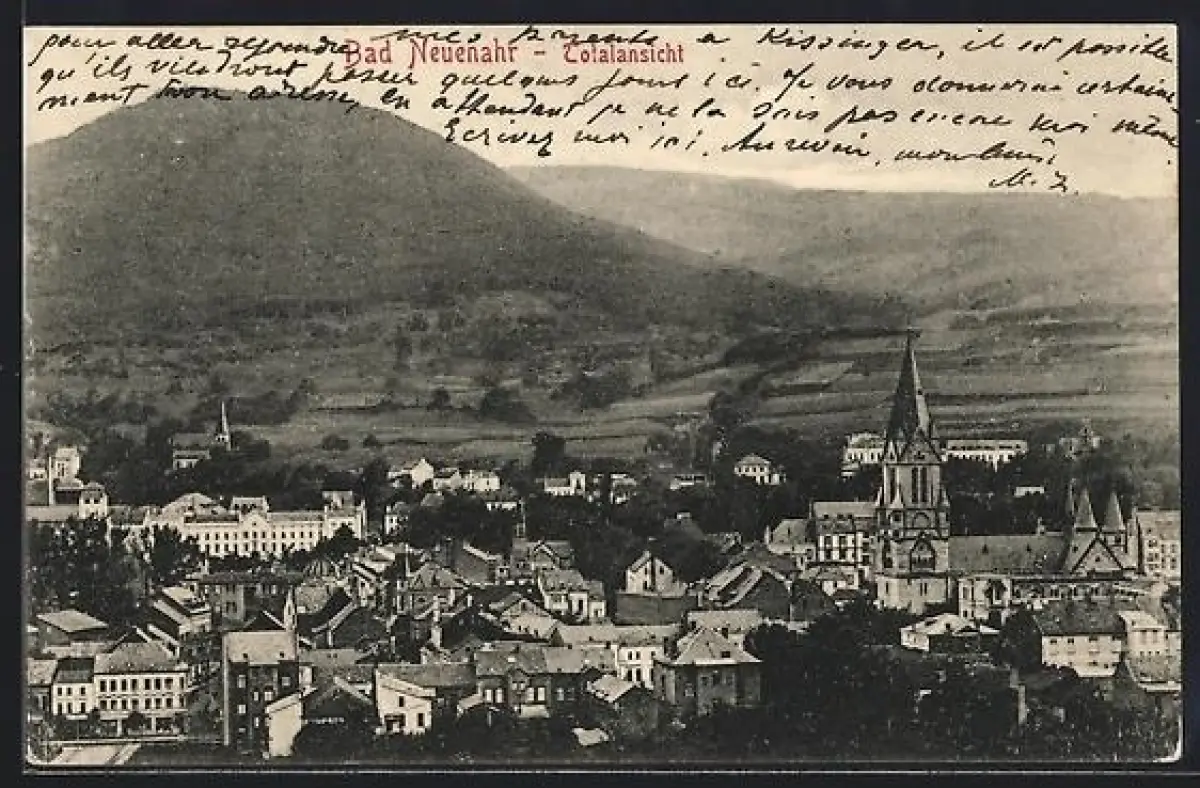 Bad Neuenahr - Totalansicht
pour aller rejoindre mes parents à Kissingen, il est possible
qu'ils viendront passer quelques jours ici. Je vous donnerai certaine
ment mon adresse, en attendant je ne la sais pas encore moi même.
Ecrivez moi ici. Au revoir, mon
M. Z.